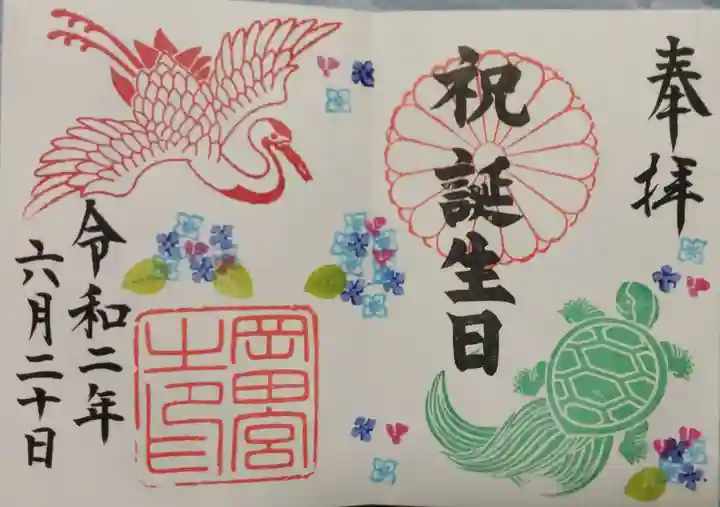 奉拝
祝誕生日
岡田宮
之印
令和二年
六月二十日